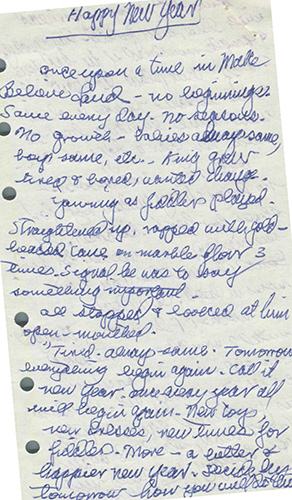 Happy New Year
once upon a time in Make
Believe Land - no beginnings.
Same every day. no seasons.
No growth - babies always same,
boys same, etc. King grew
tired & bored, wanted change.
yawning as fiddler played.
Straightened up, rapped with gold-
headed cane on marble floor 3
times. Signal he was to say
something important.
all stopped & looked at him
open-mouthed.
"Tired - always same. Tomorrow
everything begin again. Call it
new year. once every year all
will begin again - New toys,
new dresses, new tunes for
fiddler. More - a better &
happier new year. Decide by
tomorrow how you will